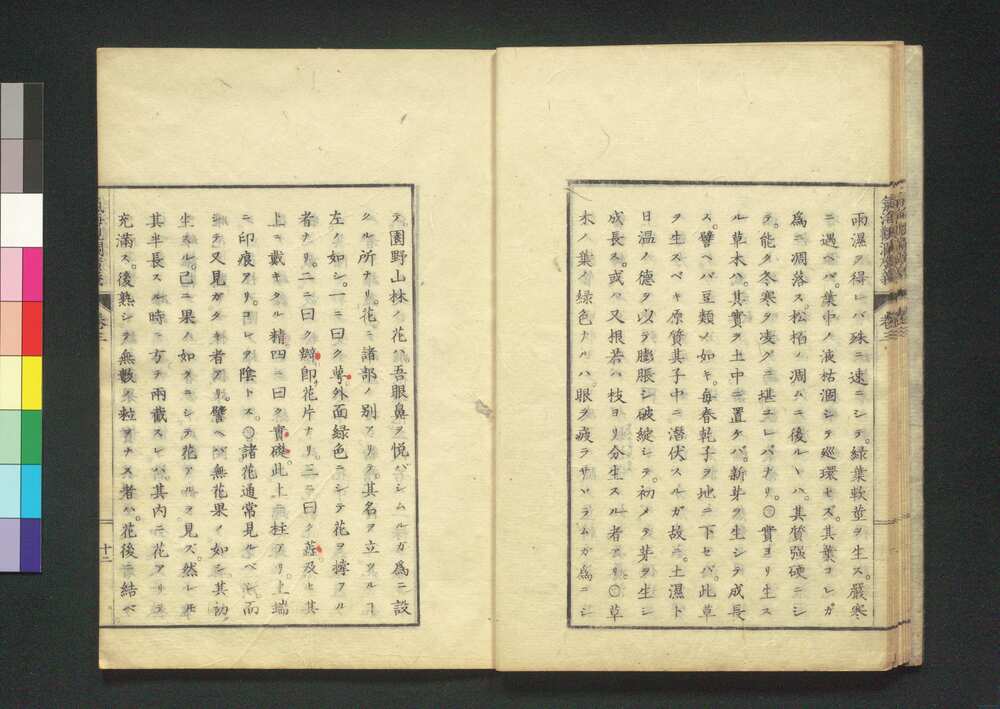 雨濕ヲ得レバ殊ニ速ニシテ。緑葉軟莖ヲ生ス。嚴寒
ニ遇ヘバ。葉中ノ液枯涸シテ巡環セズ。其葉コレガ
為ニ凋落ス。松栢ノ凋ムニ後ルヽハ。其質强硬ニシ
テ。能ク冬寒ヲ凌グニ堪ユレバナリ。〇實ヨリ生ス
ル草木ハ。其實ヲ土中ニ置ケバ。新芽ヲ生シテ成長
ス。譬ヘバ豆類ノ如キ。毎春乾子ヲ地ニ下セバ。此草
ヲ生スベキ原質其子中ニ潜伏スルガ故ニ。土濕ト
日温ノ德ヲ以テ膨脹シ破綻シテ。初メテ芽ヲ生シ
成長ス。或ハ又根若ハ枝ヨリ分生スル者アリ。〇草
木ノ葉ノ緑色ナルハ。眼ヲ疲ラサヾラムガ為ニシ
卷三
テ。園野山林ノ花ハ吾眼鼻ヲ悦バシムルガ為ニ設
クル所ナリ。花ニ諸部ノ別アリテ。其名ヲ立ツルヿ
左ノ如シ。一ニ曰ク萼。外面緑色ニシテ花ヲ擁スル
者ナリ。二ニ曰ク瓣。即花片ナリ。三ニ曰ク蕋及ヒ其
上ニ戴キタル精。四ニ曰ク實礎。此上ニ柱アリ。上端
ニ印痕アリ。コレヲ陰トス。〇諸花通常見ルベシ。而
シテ又見ガタキ者アリ。譬ヘバ無花果ノ如シ。其初
生スル。己ニ果ノ如クニシテ花アルヲ見ズ。然レ𪜈
其半長スル時ニ方テ兩截スレバ。其内ニ花アリテ
充滿ス。後熟シテ無數ノ粒ヲナス者ハ。花後ニ結ベ
卷三
十二